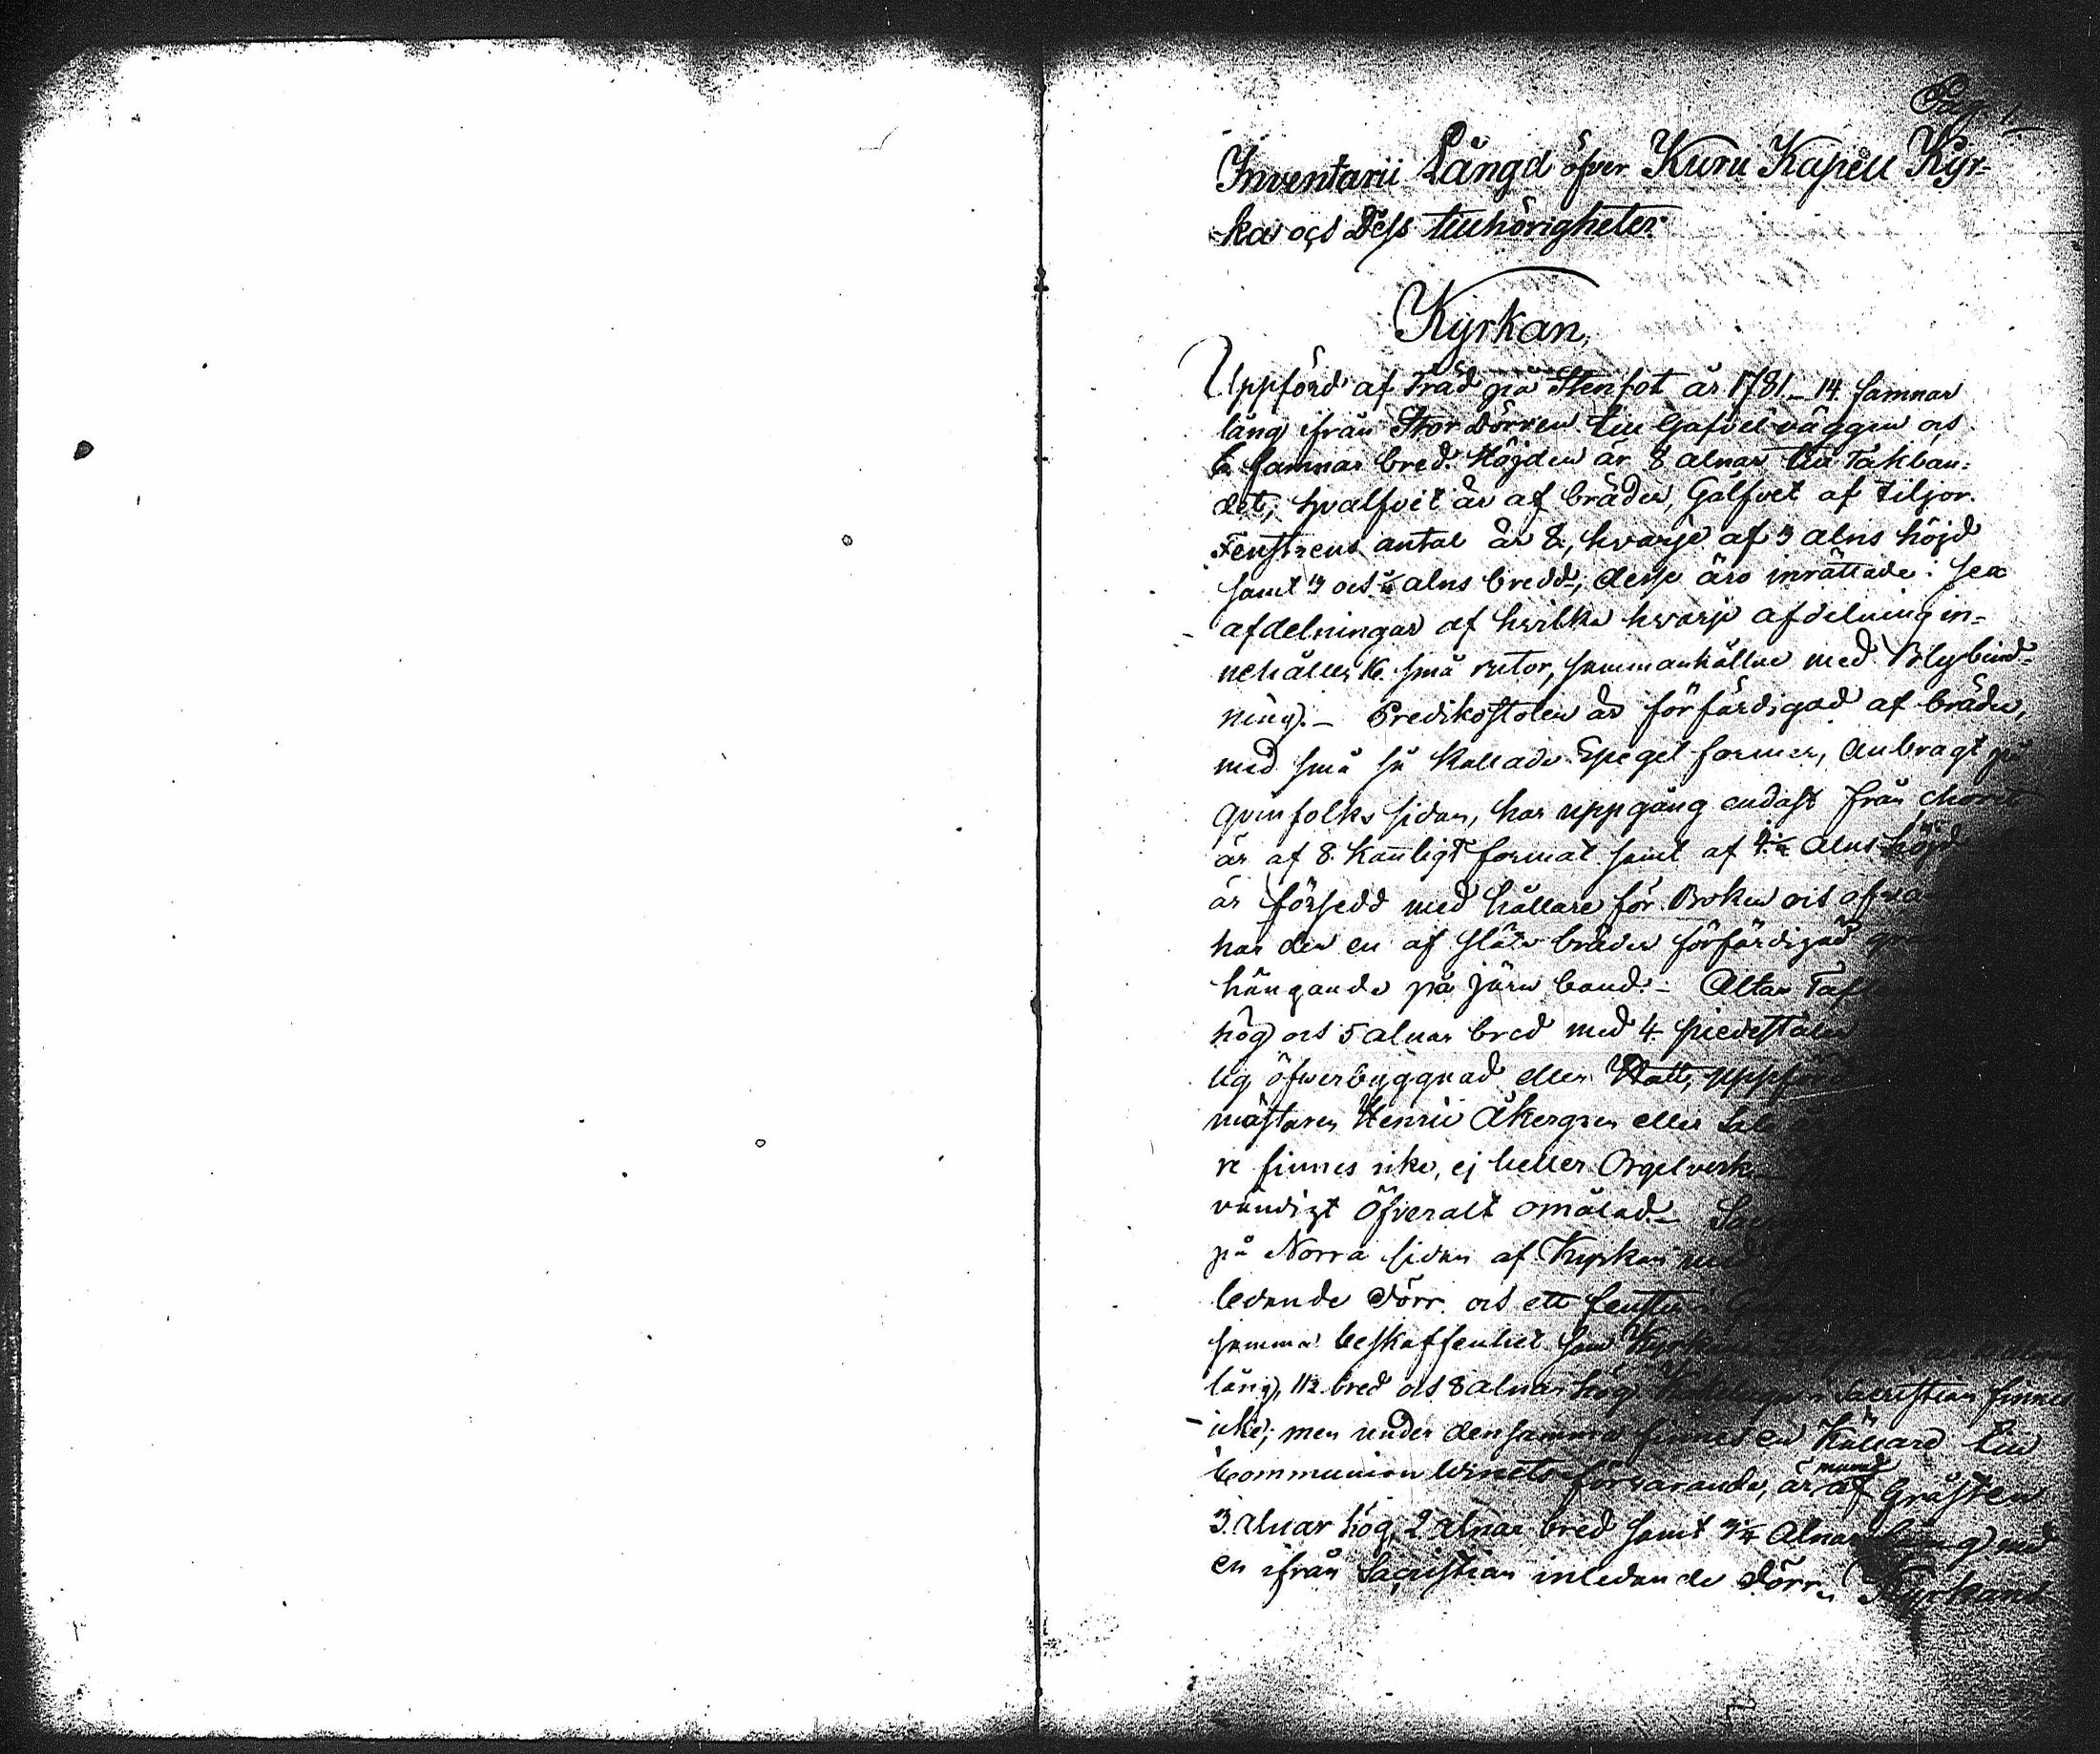 Pag. 1
Inventarii Längd öfver Kuru Kapell Kyr=
ka och Dess tillhörigheter.
Kyrkan,
Uppförd af Träd på Stenfot år 1781 – 14 famnar
lång ifrån Stor Dörren till Gafvel väggen och
6 famnar bred. Höjden är 8 alnar till Takban=
det, hvalfvet är af bräder, Gålfvet af tiljor.
Fenstrens antal är 8, hvarje af 3 alns höjd
samt och alns bredd, desse äro inrättade i sex
afdelningar af hvilka hvarje afdelning in=
nehåller 16 små rutor, sammanhållne med Blybind=
ning. – Predikostolen är förfärdigad af bräder,
med små så kallade Spegel former, anbragt på
qvinfolks sidan, har uppgång endast från choret
är af 8 kantigt format samt af alns höjd
är försedd med hållare för Boken och
har den en af släta bräder förfärdigad
hängande på järn band. – Altar
hög och 5 alnar bred med 4 piedestaler
lig öfverbyggnad eller Hatt, uppförd
mästaren Henric Åkergren eller
re finnes icke, ej heller Orgelverk
vändigt öfveralt omålad. –
på Norra sidan af Kyrkan med
ledande dörr och ett fenster
samma beskaffenhet som Kyrkans
lång, 11½ bred och 8 alnar hög. Sacristian finnes
icke; men under densamma finnes en Källare till
Communion winets förvarande, är murad af Gråsten
3 alnar hög, 2 alnar bred samt 3¼ Alnar lång med
en ifrån Sacristian inledande dörr. Kyrkans